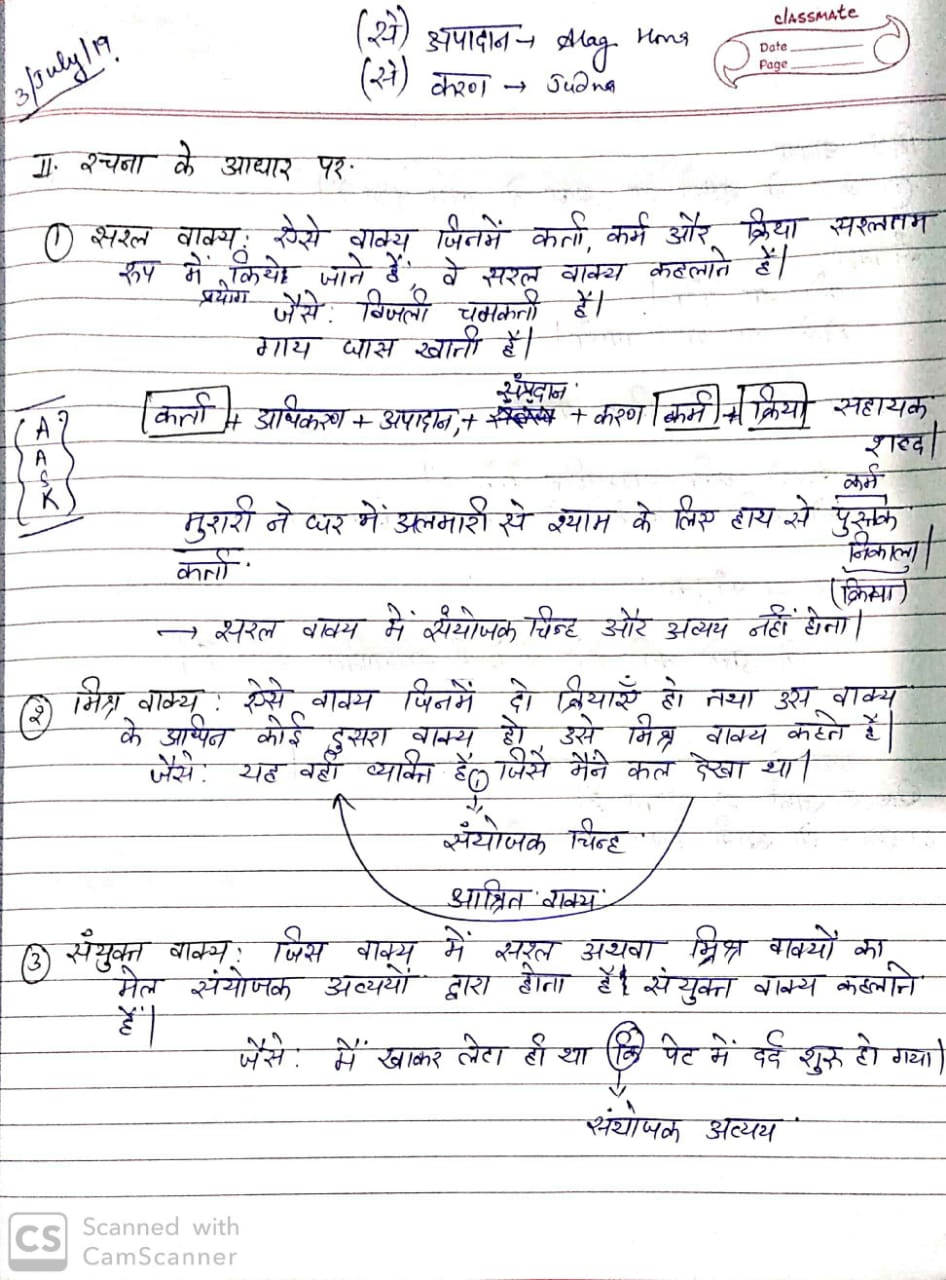 3/July/19.
(से) अपादान → Alag Hona
(से) करण → Judna
classmate
Date
Page
II. रचना के आधार पर.
① सरल वाक्य: ऐसे वाक्य जिनमें कर्ता, कर्म और क्रिया सरलतम
रूप में किये जाने हैं, वे सरल वाक्य कहलाते हैं।
प्रयोग
जैसे: बिजली चमकती हैं।
गाय घास खाती हैं।
संप्रदान
कर्ता + अधिकरण + अपादान, + + करण कर्म + क्रिया सहायक
शब्द।
A
A
S
K
कर्म
मुरारी ने घर में अलमारी से श्याम के लिए हाथ से पुस्तक
कर्ता. निकाला।
(क्रिया)
→ सरल वाक्य में संयोजक चिन्ह और अव्यय नहीं होता।
② मिश्र वाक्य: ऐसे वाक्य जिनमें दो क्रियाएँ हो तथा उस वाक्य
के आधिन कोई दुसरा वाक्य हो उसे मिश्र वाक्य कहते हैं।
जैसे: यह वही व्यक्ति हैं, जिसे मैंने कल देखा था।
संयोजक चिन्ह
आश्रित वाक्य
③ संयुक्त वाक्य: जिस वाक्य में सरल अथवा मिश्र वाक्यों का
मेल संयोजक अव्ययों द्वारा होता हैं संयुक्त वाक्य कहलाते
हैं।
जैसे: मैं खाकर लेटा ही था कि पेट में दर्द शुरू हो गया।
संयोजक अव्यय
CS Scanned with
CamScanner